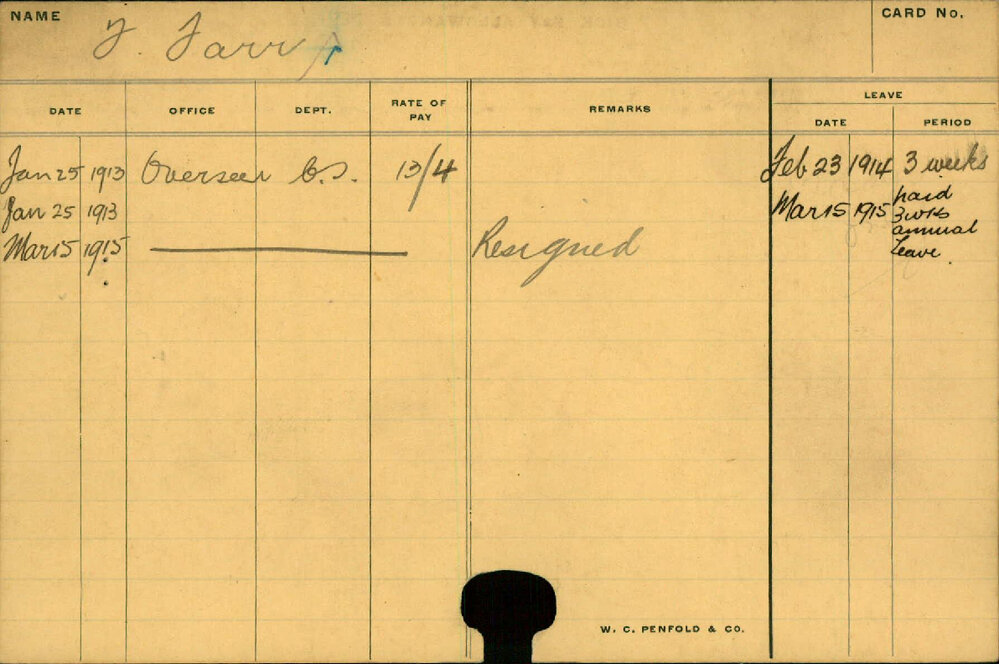 NAME
F. Farr
CARD No.
DATE OFFICE DEPT. RATE OF PAY REMARKS LEAVE
DATE PERIOD
Jan 25 1913 Overseer 13/4 Feb 23 1914 3 weeks
Jan 25 1913 Mar 15 1915 paid 3 wks annual leave.
Mar 15 1915 Resigned
W. C. PENFOLD & CO.